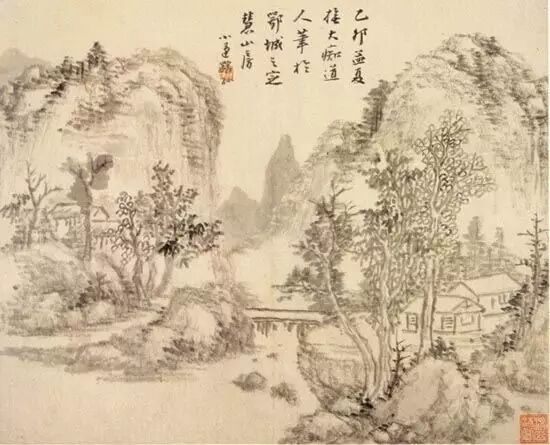 乙卯孟夏
大痴道
人筆於
鄂城之定
慧山房
小